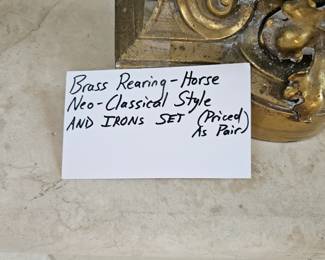 Brass Rearing-Horse
Neo-Classical Style
AND IRONS SET (Priced
As Pair)